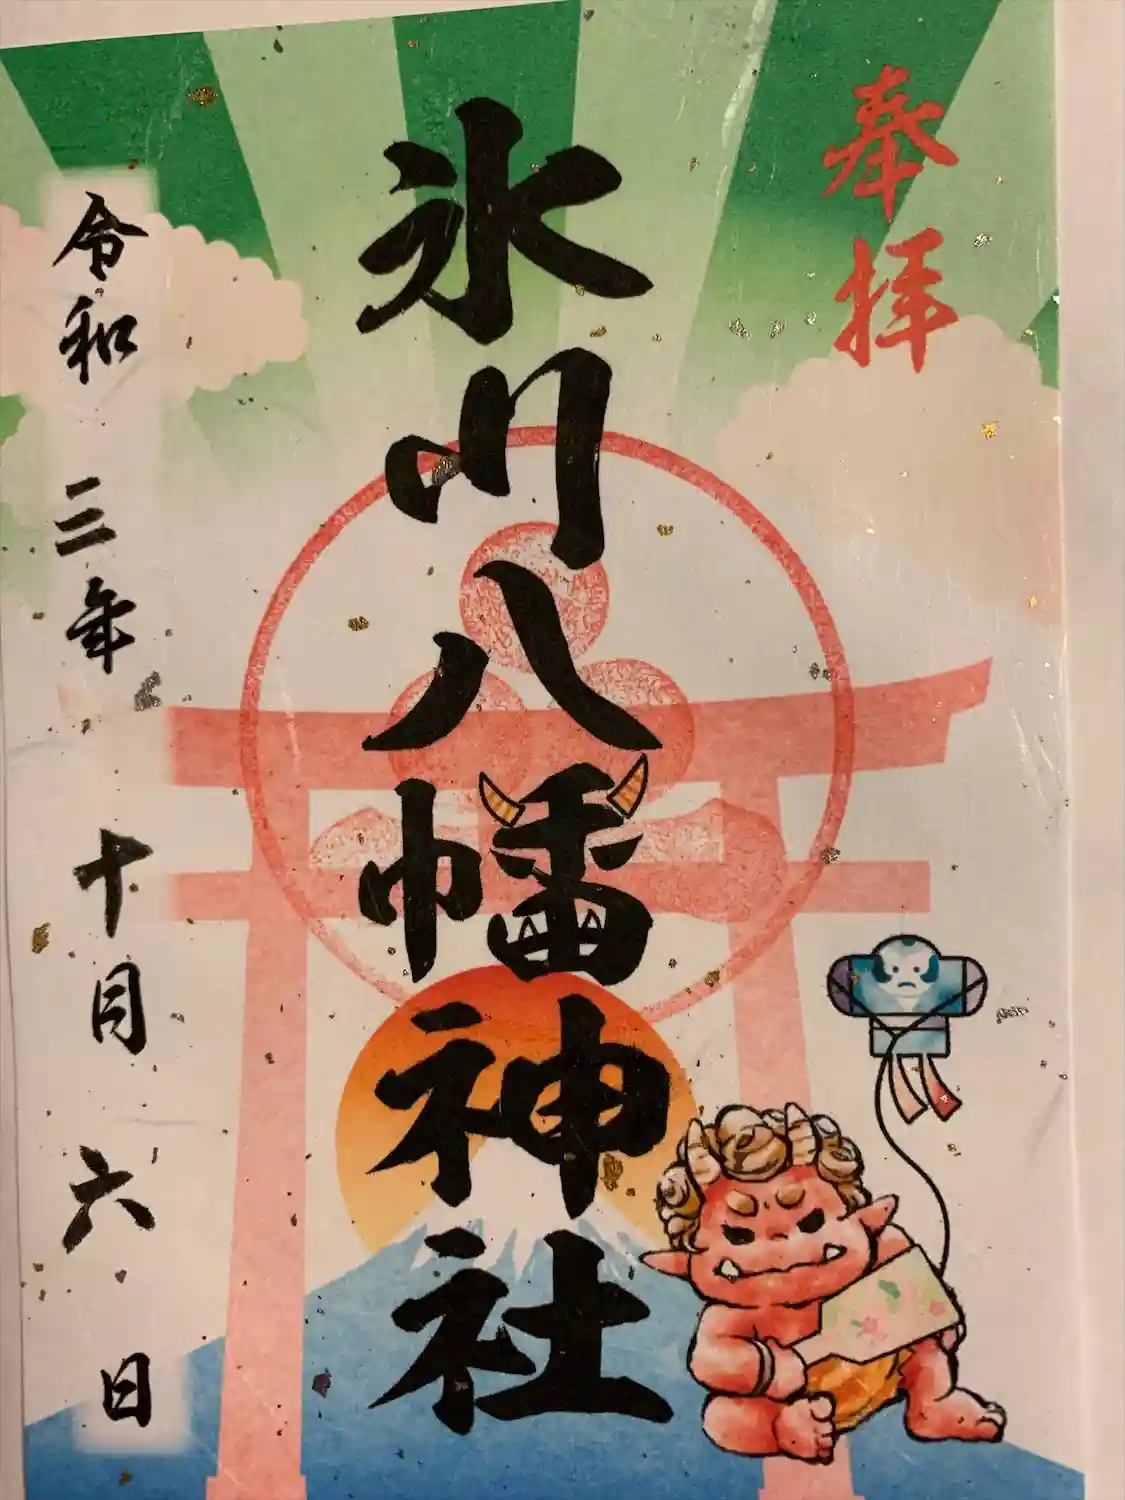 奉拝
氷川八幡神社
令和三年十月六日